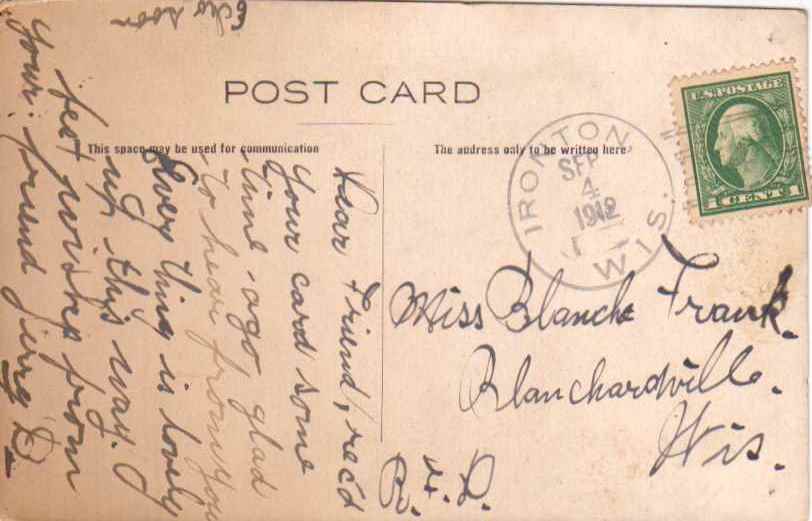 POST CARD
This space may be used for communication
The address only to be written here
U.S. POSTAGE
1 CENT 1
IRONTON
SEP
4
1912
WIS.
Dear Friend, rec'd
your card some
time ago glad
to hear from you
Every thing is lovely
up this way.
best wishes from
your friend
Miss Blanche Frank.
Blanchardville.
Wis.